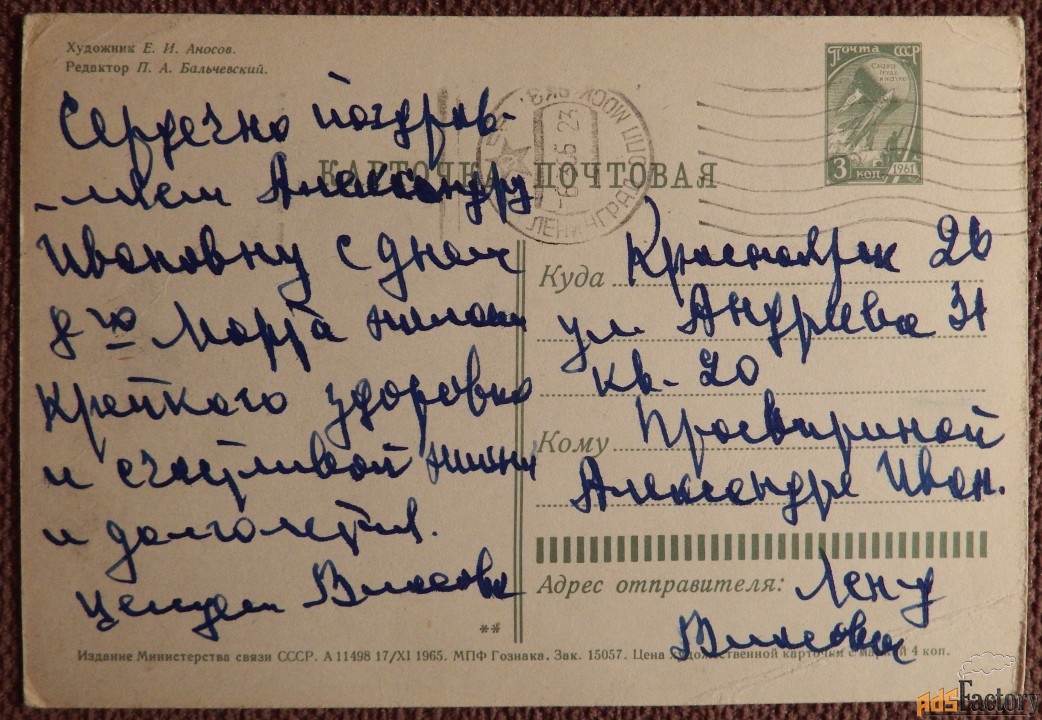 Художник Е. И. Аносов.
Редактор П. А. Бальчевский.
Почта СССР
Слава труду и науке
3 коп. 1961
МОСК. ВКЗ.
ЛЕНИНГРАД ПП
-6 23
КАРТОЧКА ПОЧТОВАЯ
Сердечно поздрав-
-ляем Александру
Ивановну с днем
8го Марта желаем
крепкого здоровья
и счастливой жизни
и долголетия.
целуем
Куда Красноярск 26
ул Андреева 31
кв. 20
Кому Просвириной
Александре Иван.
Адрес отправителя: Лен
**
Издание Министерства связи СССР. А 11498 17/XI 1965. МПФ Гознака. Зак. 15057. Цена художественной карточки с маркой 4 коп.
AdsFactory